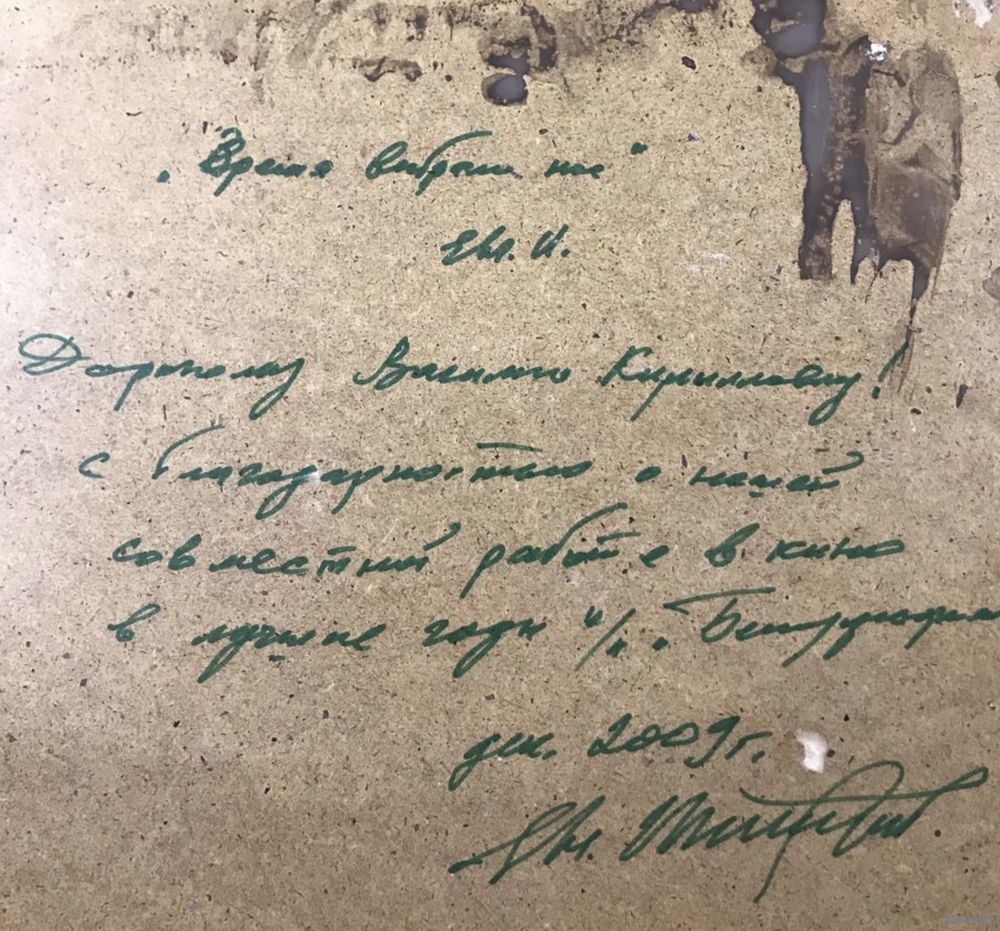 „Время выбрало нас"
Евг. И.
Дорогому Василию Кирилловичу!
с благодарностью о нашей
совместной работе в кино
в лучшие годы к/с. Беларусьфильм
дек. 2009г.
Евг.